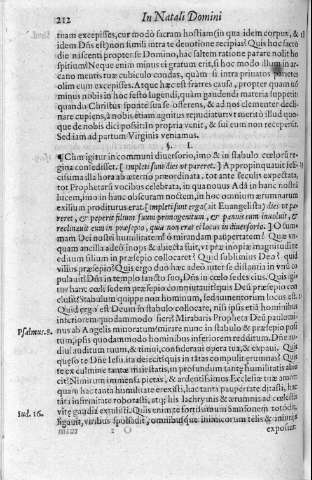 212 In Natali Domini
tuam excepisses, cur modò sacram hostiam (in qua idem corpus, &
idem Dñs est) non simili intra te deuotione recipias? Quis hoc facto
die nascenti propter se Domino, hac saltem ratione parare nolit ho
spitium? Neque enim minus ei gratum erit, si hoc modo illum in ar
cano mentis tuæ cubiculo condas, quàm si intra priuatos parietes
olim eum excepisses. Atque hæc est fratres causa, propter quam
minus nobis in hoc festo lugendi, quàm gaudendi materia
quando Christus sponte sua se offerens, & ad nos clementer
nare cupiens, à nobis etiam agnitus repudiatur: vt meritò illud
que de nobis dici possit: In propria venit, & sui eum non receperunt.
Sed iam ad partum Virginis veniamus.
§. I.
¶ Cùm igitur in communi diuersorio, imò & in stabulo cœlorum re
gina consedisset. [impleti sunt dies vt pareret.] Appropinquauit feli-
cissima illa hora ab æterno præordinata, tot ante seculis expectata,
tot Prophetarũ vocibus celebrata, in qua nouus Adã in hanc nostrã
lucem, imò in hanc obscuram noctem, in hoc omnium ærumnarum
exilium proditurus erat. [impleti sunt ergo (ait Euangelista) dies vt pa
reret, & peperit filium suum primogenitum, & pannis eum inuoluit, &
reclinauit eum in præsepio, quia non erat ei locus in diuersorio.] O sum-
mam Dei nostri humilitatem! ô mirandam paupertatem! Quæ vn
quam ancilla adeò inops & abiecta fuit, vt præ inopiæ magnitudine
eduum filium in præsepio collocaret? Quid sublimius Deo? quid
vilius præsepio? Quis ergo duo hæc adeò inter se distantia in vnũ co
pulauit? Dñs in templo sancto suo, Dñs in cœlo sedes eius. Quis igi-
tur hanc cœli sedem præsepio commutauit? quis Deũ præsepio con
clusit? Stabulum quippe non hominum, sed iumentorum locus est.
Quid ergo est Deum in stabulo collocare, nisi ipsis etiã hominibus
inferiorem quodammodo facere? Miraberis Propheta Deũ paulomi-
Psalmus. 8. nus ab Angelis minoratum? mirare nunc in stabulo & præsepio posi
tum, ipsis quodammodo hominibus inferiorem redditum. Dñe au-
diui auditum tuum, & timui, consideraui opera tua, & expaui. Quis
quæso te Dñe Iesu in a deiecit? quis in tantas compulit ærumnas? Quis
te ex culmine tantæ maiestatis, in profundum tantæ humilitatis abie
cit? Nimirum immensa pietas, & ardentissimus Ecclesiæ tuæ amor:
quam hac tanta humilitate erexisti, hac tanta paupertate ditasti, hac
tãta infirmitate roborasti, atq; his lachrymis & ærumnis ad cœlestis
Iud. 16. vitæ gaudia extulisti. Quis enim te fortissimum Samsonem totodis
ligauit, viribus spoliauit, omnibusque inimicorum telis & iniurijs
O exposuit